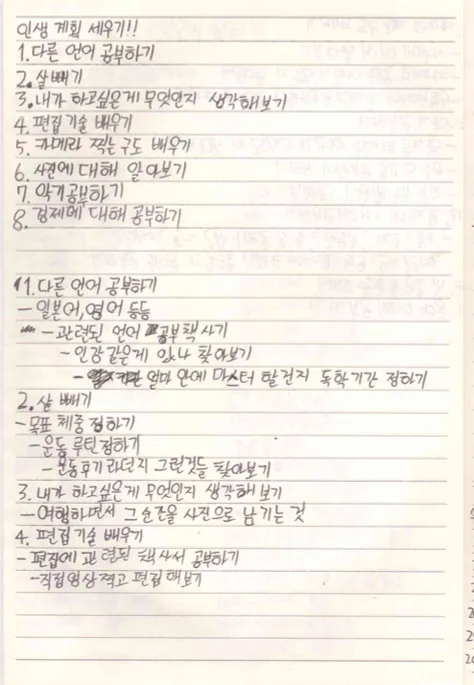 인생 계획 세우기!!
1.다른 언어 공부하기
2.살빼기
3.내가 하고싶은게 무엇인지 생각해보기
4.편집기술 배우기
5.카메라 찍는구도 배우기
6.사진에 대해 알아보기
7.악기공부하기
8.경제에 대해 공부하기
1.다른 언어 공부하기
- 일본어,영어 등등
- 관련된 언어 공부책 사기
- 인강같은게 있나 찾아보기
- 얼마 안에 마스터 할건지 독학기간 정하기
2.살 빼기
-목표 체중정하기
-운동 루틴정하기
-운동후기라던지 그런것들 찾아보기
3.내가 하고싶은게 무엇인지 생각해보기
-여행하면서 그순간을 사진으로 남기는 것
4.편집기술 배우기
-편집에 관련된 책사서 공부하기
-직접영상찍고 편집해보기